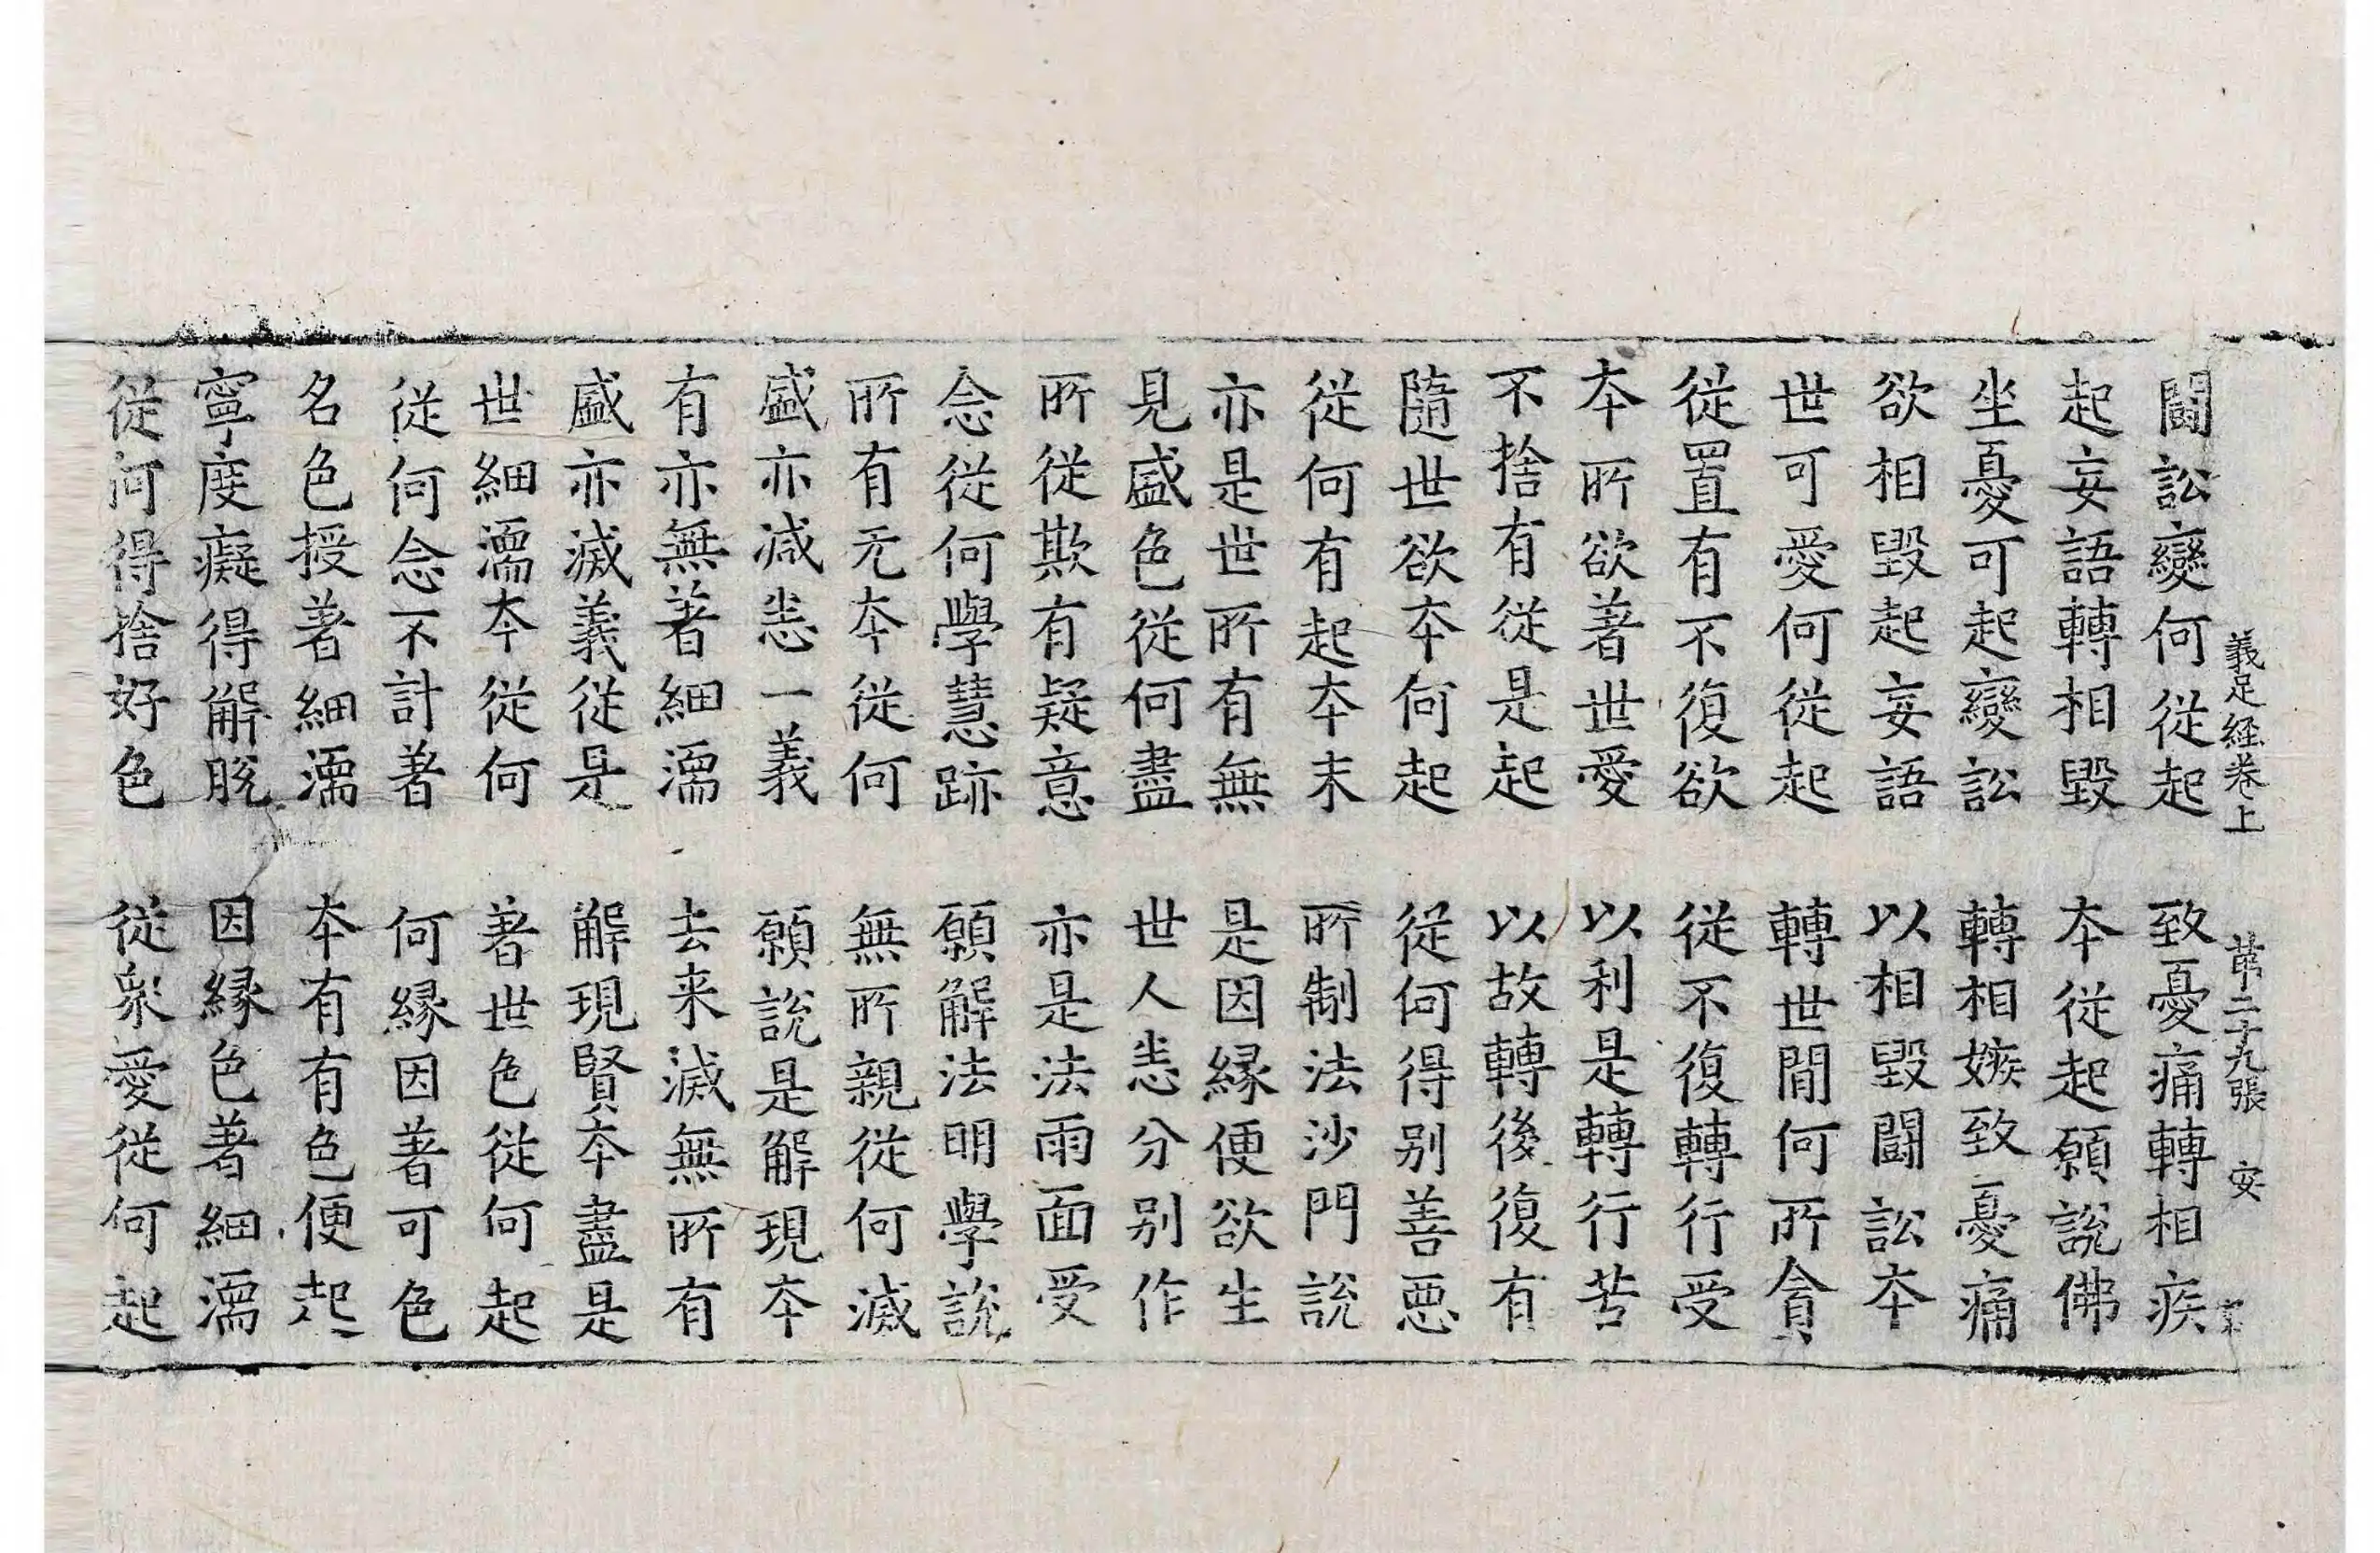 義足經卷上 苐二十九張 安
鬪訟變何從起 致憂痛轉相疾
起妄語轉相毀 本從起願說佛
坐憂可起變訟 轉相嫉致憂痛
欲相毀起妄語 以相毀鬪訟本
世可愛何從起 轉世閒何所貪
從置有不復欲 從不復轉行受
本所欲著世愛 以利是轉行苦
不捨有從是起 以故轉後復有
隨世欲本何起 從何得別善惡
從何有起本末 所制法沙門說
亦是世所有無 是因緣便欲生
見盛色從何盡 世人恙分別作
所從欺有疑意 亦是法雨面受
念從何學慧跡 願解法明學說
所有无本從何 無所親從何滅
盛亦減恙一義 願說是解現本
有亦無著細濡 去来滅無所有
盛亦滅義從是 解現賢本盡是
世細濡本從何 著世色從何起
從何念不計著 何緣因著可色
名色授著細濡 本有有色便起
寧度癡得解脫 因緣色著細濡
從何得捨好色 從衆愛從何起